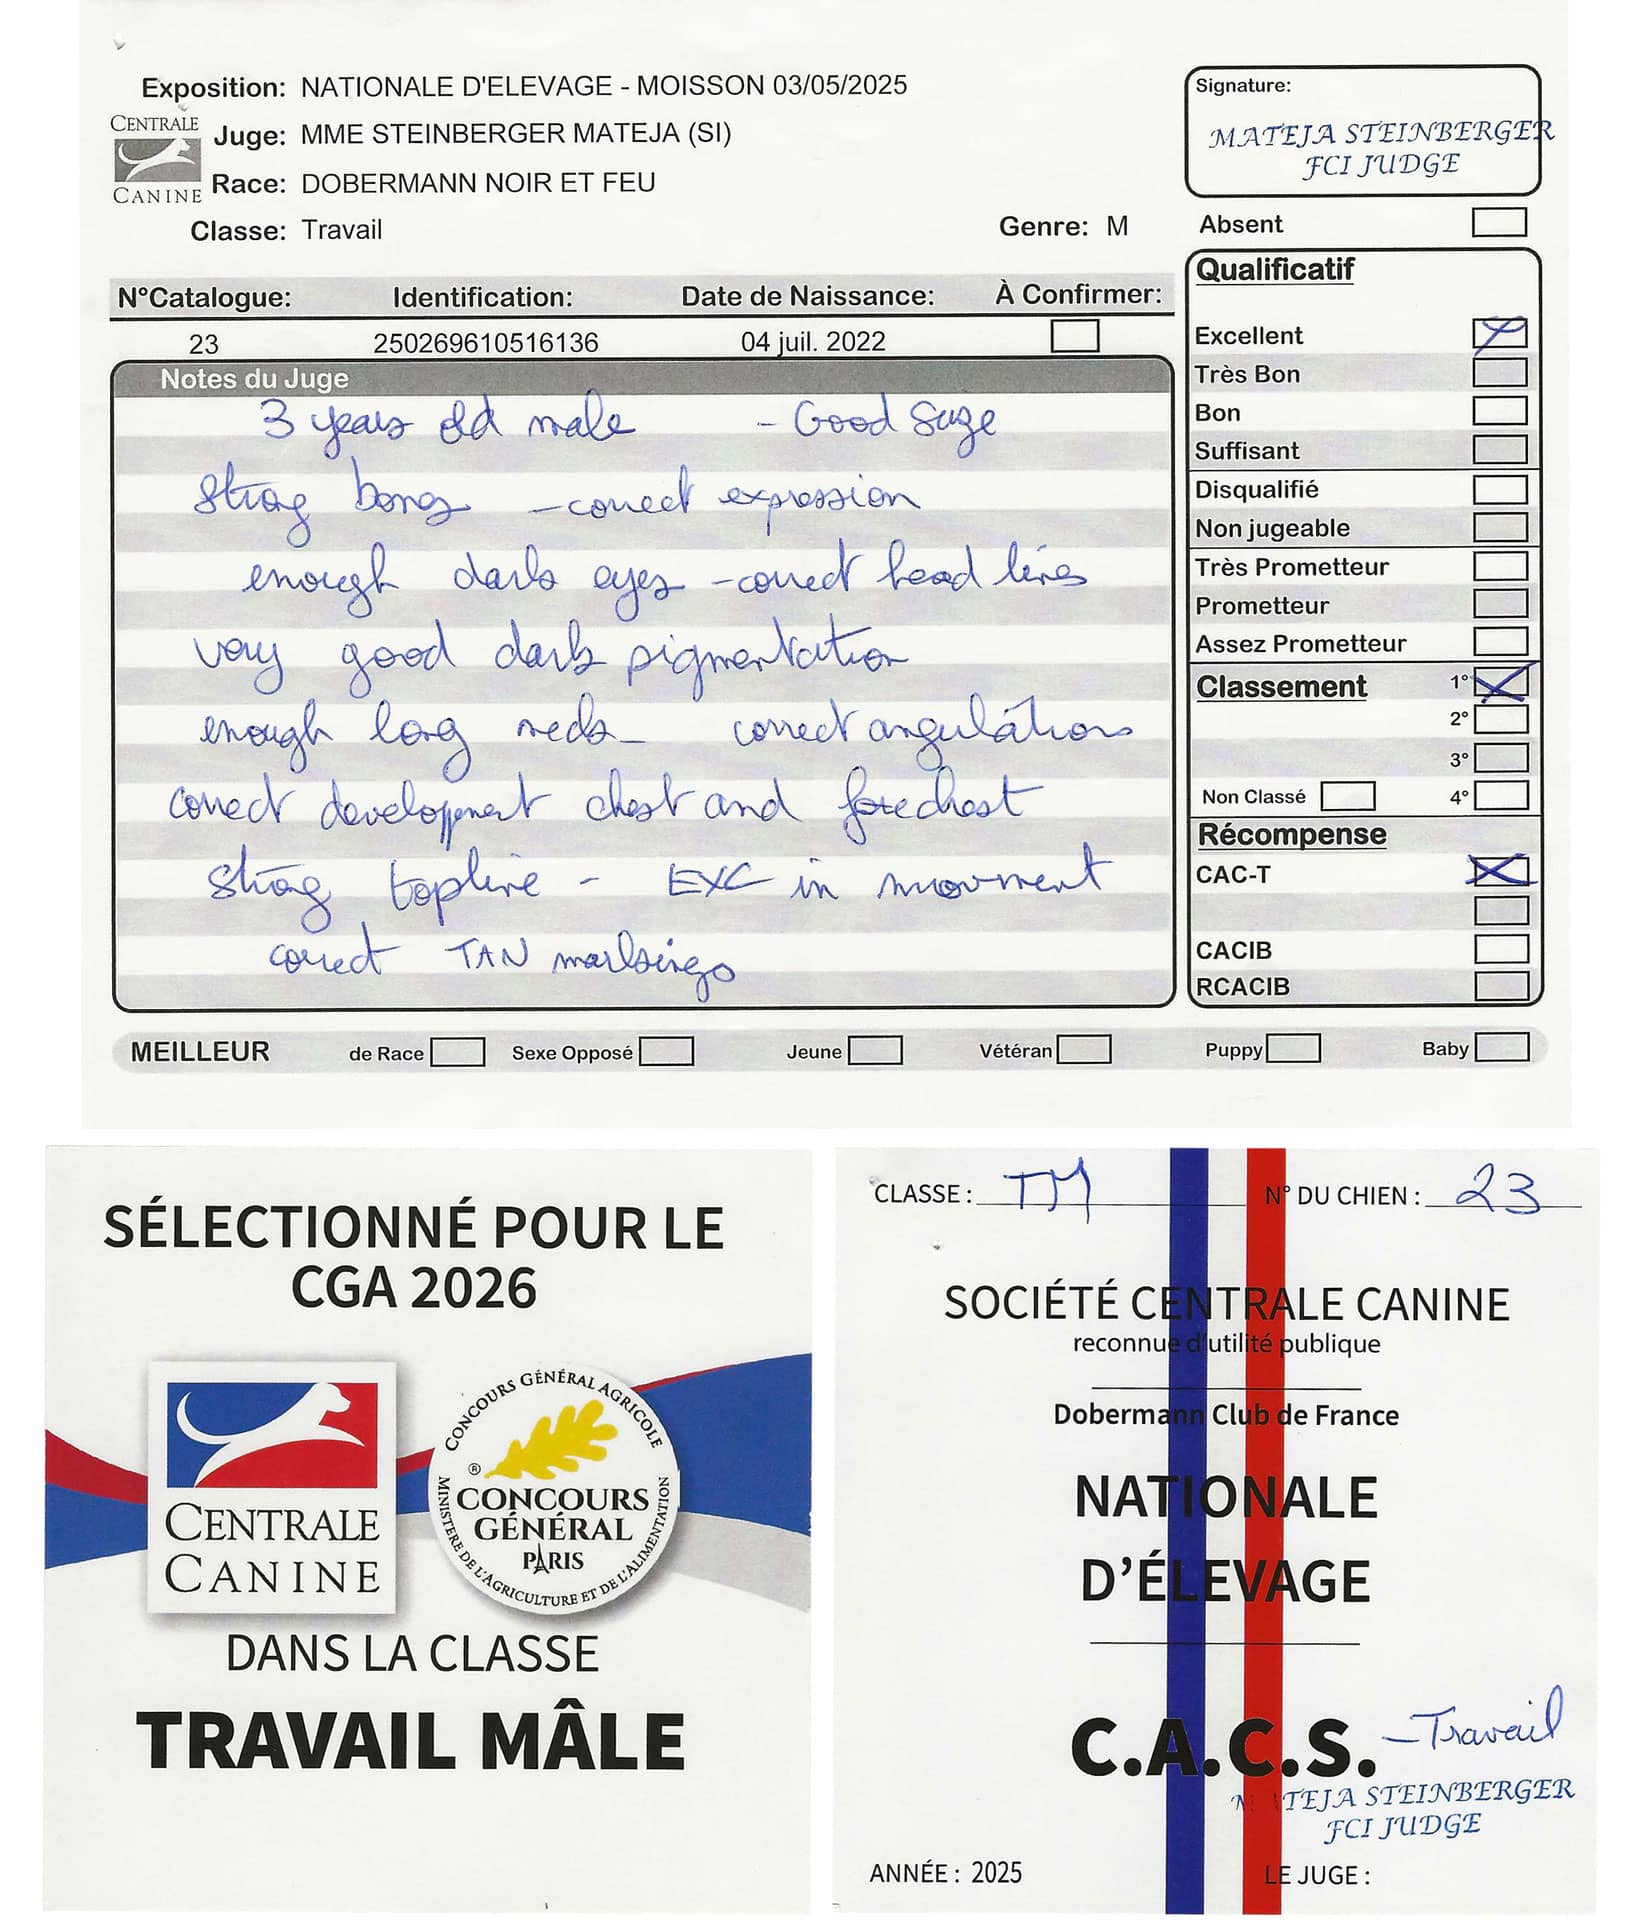 Exposition: NATIONALE D'ELEVAGE - MOISSON 03/05/2025
CENTRALE CANINE
Juge: MME STEINBERGER MATEJA (SI)
Race: DOBERMANN NOIR ET FEU
Classe: Travail
Genre: M
Signature:
MATEJA STEINBERGER
FCI JUDGE
Absent
N°Catalogue: Identification: Date de Naissance: À Confirmer:
23 250269610516136 04 juil. 2022
Notes du Juge
3 years old male - Good Suze
strong bones - correct expression
enough dark eyes - correct head lines
very good dark pigmentation
enough long neck - correct angulations
correct development chest and forechest
strong topline - EXC in movment
correct TAN markings
Qualificatif
Excellent
Très Bon
Bon
Suffisant
Disqualifié
Non jugeable
Très Prometteur
Prometteur
Assez Prometteur
Classement 1°
2°
3°
Non Classé 4°
Récompense
CAC-T
CACIB
RCACIB
MEILLEUR de Race Sexe Opposé Jeune Vétéran Puppy Baby
SÉLECTIONNÉ POUR LE
CGA 2026
CENTRALE
CANINE
CONCOURS GÉNÉRAL AGRICOLE
®
CONCOURS
GÉNÉRAL
PARIS
MINISTÈRE DE L'AGRICULTURE ET DE L'ALIMENTATION
DANS LA CLASSE
TRAVAIL MÂLE
CLASSE : TM N° DU CHIEN : 23
SOCIÉTÉ CENTRALE CANINE
reconnue d'utilité publique
Dobermann Club de France
NATIONALE
D'ÉLEVAGE
C.A.C.S. - Travail
MATEJA STEINBERGER
FCI JUDGE
ANNÉE : 2025 LE JUGE :